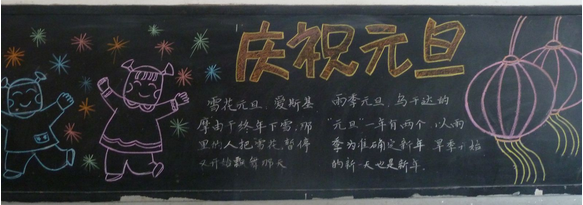 庆祝元旦
雪花元旦、爱斯基
摩由于终年下雪,那
里的人把雪花暂停
又开始飘
雨季元旦,乌干达的
“元旦”一年有两个,以雨
季为准确定新年,旱季开始
的新一天也是新年.